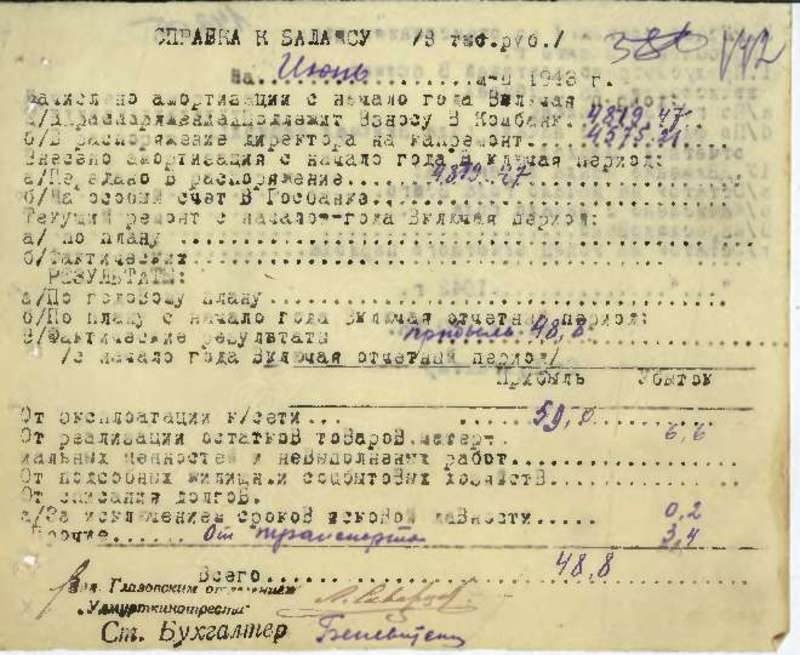 СПРАВКА К БАЛАНСУ /В тыс.руб./
На Июнь м-ц 1943 г.
Начислено амортизации с начало года Включая период:
а/В распоряжение Подлежит Взносу В Комбанк. 4879.47
б/В распоряжение директора на капремонт.... 4575.21
Внесено амортизация с начало года В ключая период:
а/Передано В распоряжение........ 4879.47
б/На особый счет В Госбанке........
Текущий ремонт с начало--года Включая период:
а/ по плану ........
б/Фактических........
РЕЗУЛЬТАТЫ:
а/По годовому плану........
б/По плану с начало года Включая отчетная период:
В/Фактические результаты прибыль 48,8
/с начало года Включая отчетный период/
Прибыль Убыток
От эксплоатации к/сети... 59,0
От реализации остатков товаров.матери- 6,6
иальных ценностей и невыполненых работ........
От подсобных жилищн.и соцбытовых хозяйств........
От списания долгов.
а/За исключением сроков исковой давности...... 0,2
Прочие...... От транспорта 3,4
Всего........ 48,8
Зав. Глазовским отделением
„Удмурткинотреста"
Ст. Бухгалтер